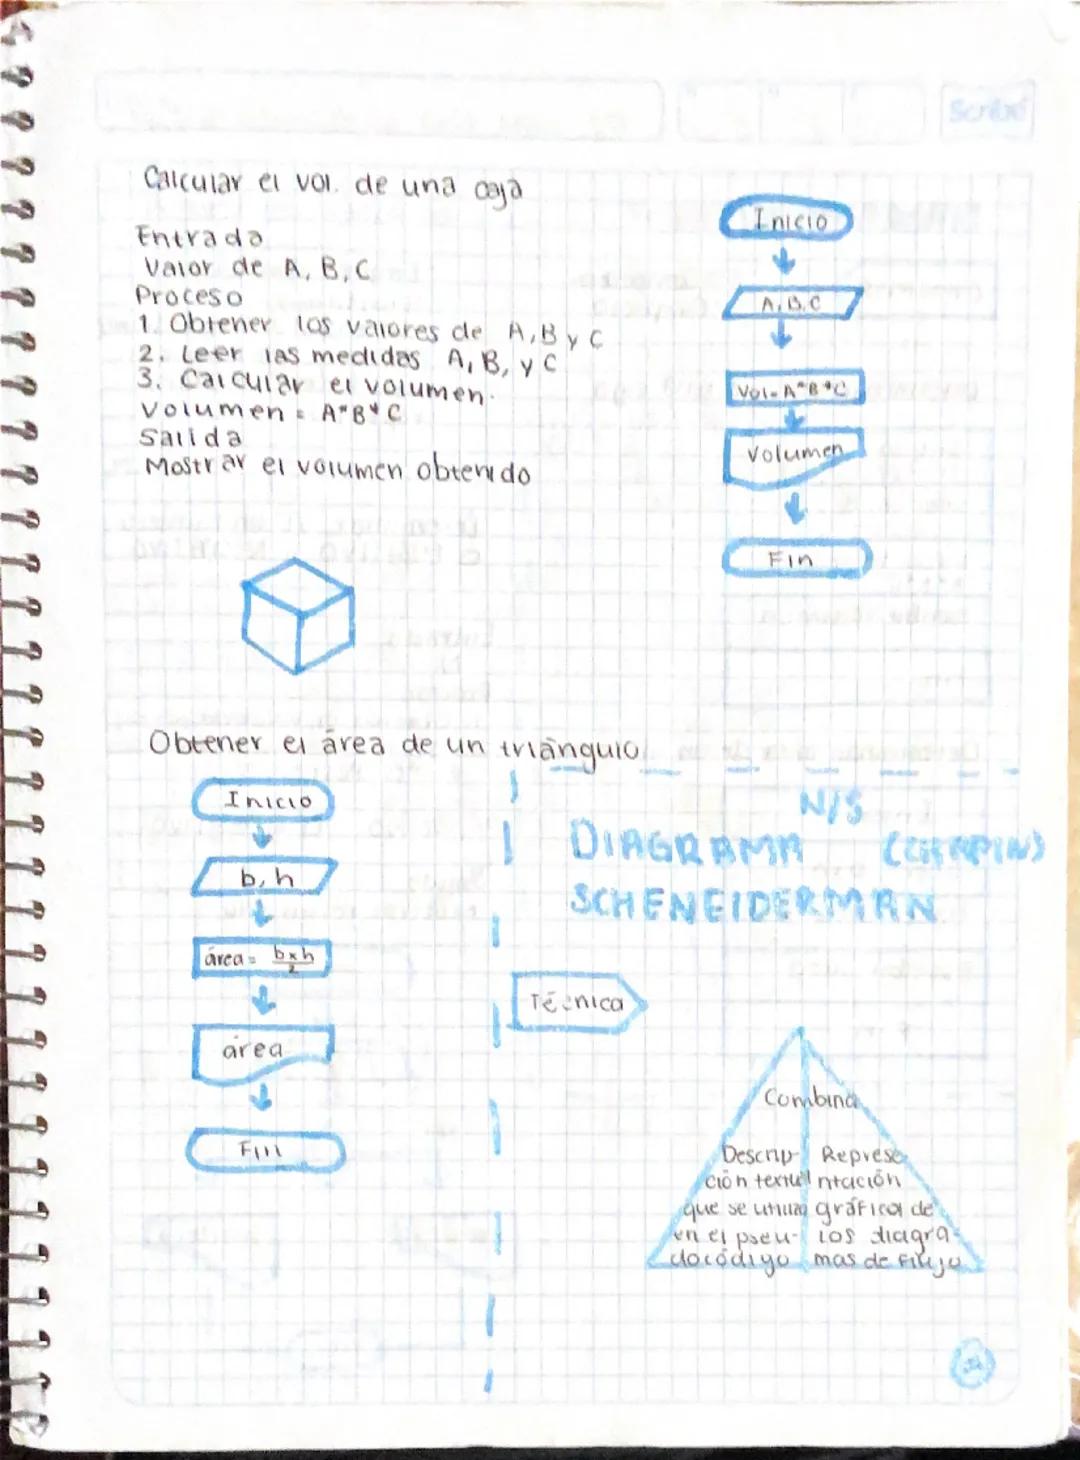 Scribe
Calcular el vol. de una caja
Entrada
Valor de A, B, C
Proceso
1. Obtener los valores de A, B y C
2. Leer las medidas A, B, y C
3. Calcular el volumen.
Volumen = A*B*C
Salida
Mostrar el volumen obtenido
Inicio
A, B, C
Vol = A*B*C
Volumen
Fin
Obtener el área de un triángulo
Inicio
b, h
área = b×h
2
área
Fin
N/S
DIAGRAMA (CHAPIN)
SCHENEIDERMAN
Técnica
Combina
Descrip-
ción textual
que se utiliza
en el pseu-
docódigo
Represe
ntación
gráfica de
los diagra-
mas de flujo